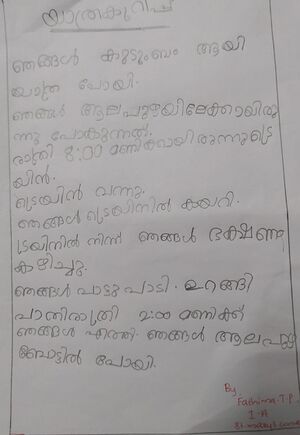 യാത്രകുറിപ്പ്
ഞങ്ങൾ കുടുംബം ആയി
യാത്ര പോയി.
ഞങ്ങൾ ആലപുഴയിലേക്കായിരു
ന്നു പോകുന്നത്.
രാത്രി 8:00 മണിക്കായിരുന്നു ട്രെ
യിൻ.
ട്രെയിൻ വന്നു.
ഞങ്ങൾ ട്രെയിനിൽ കയറി.
ട്രെയിനിൽ നിന്ന് ഞങ്ങൾ ഭക്ഷണം
കഴിച്ചു.
ഞങ്ങൾ പാട്ടു പാടി. ഉറങ്ങി
പാതിരാത്രി 2:00 മണിക്ക്
ഞങ്ങൾ എത്തി. ഞങ്ങൾ ആലപുഴ
ബോട്ടിൽ പോയി.
By
Fathima.T.P
I-A
St. mary's